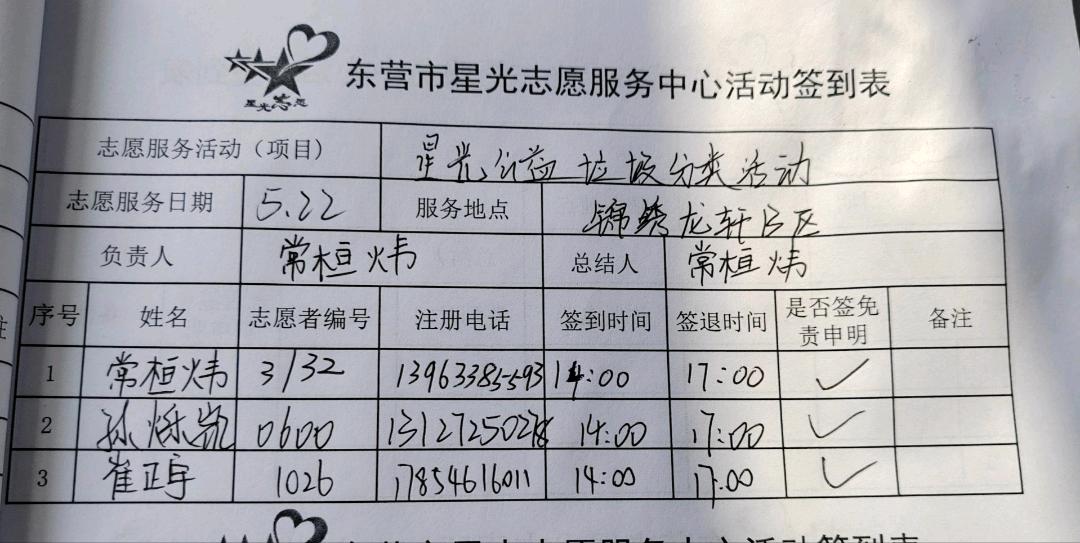 星光志愿
东营市星光志愿服务中心活动签到表
志愿服务活动（项目） 星光公益垃圾分类活动
志愿服务日期 5.22 服务地点 锦绣龙轩B区
负责人 常桓炜 总结人 常桓炜
序号 姓名 志愿者编号 注册电话 签到时间 签退时间 是否签免责申明 备注
1 常桓炜 3132 13963385593 14:00 17:00 ✓
2 孙烁凯 0600 13127250278 14:00 17:00 ✓
3 崔正宇 1026 17854616011 14:00 17:00 ✓
东营市星光志愿服务中心活动签到表